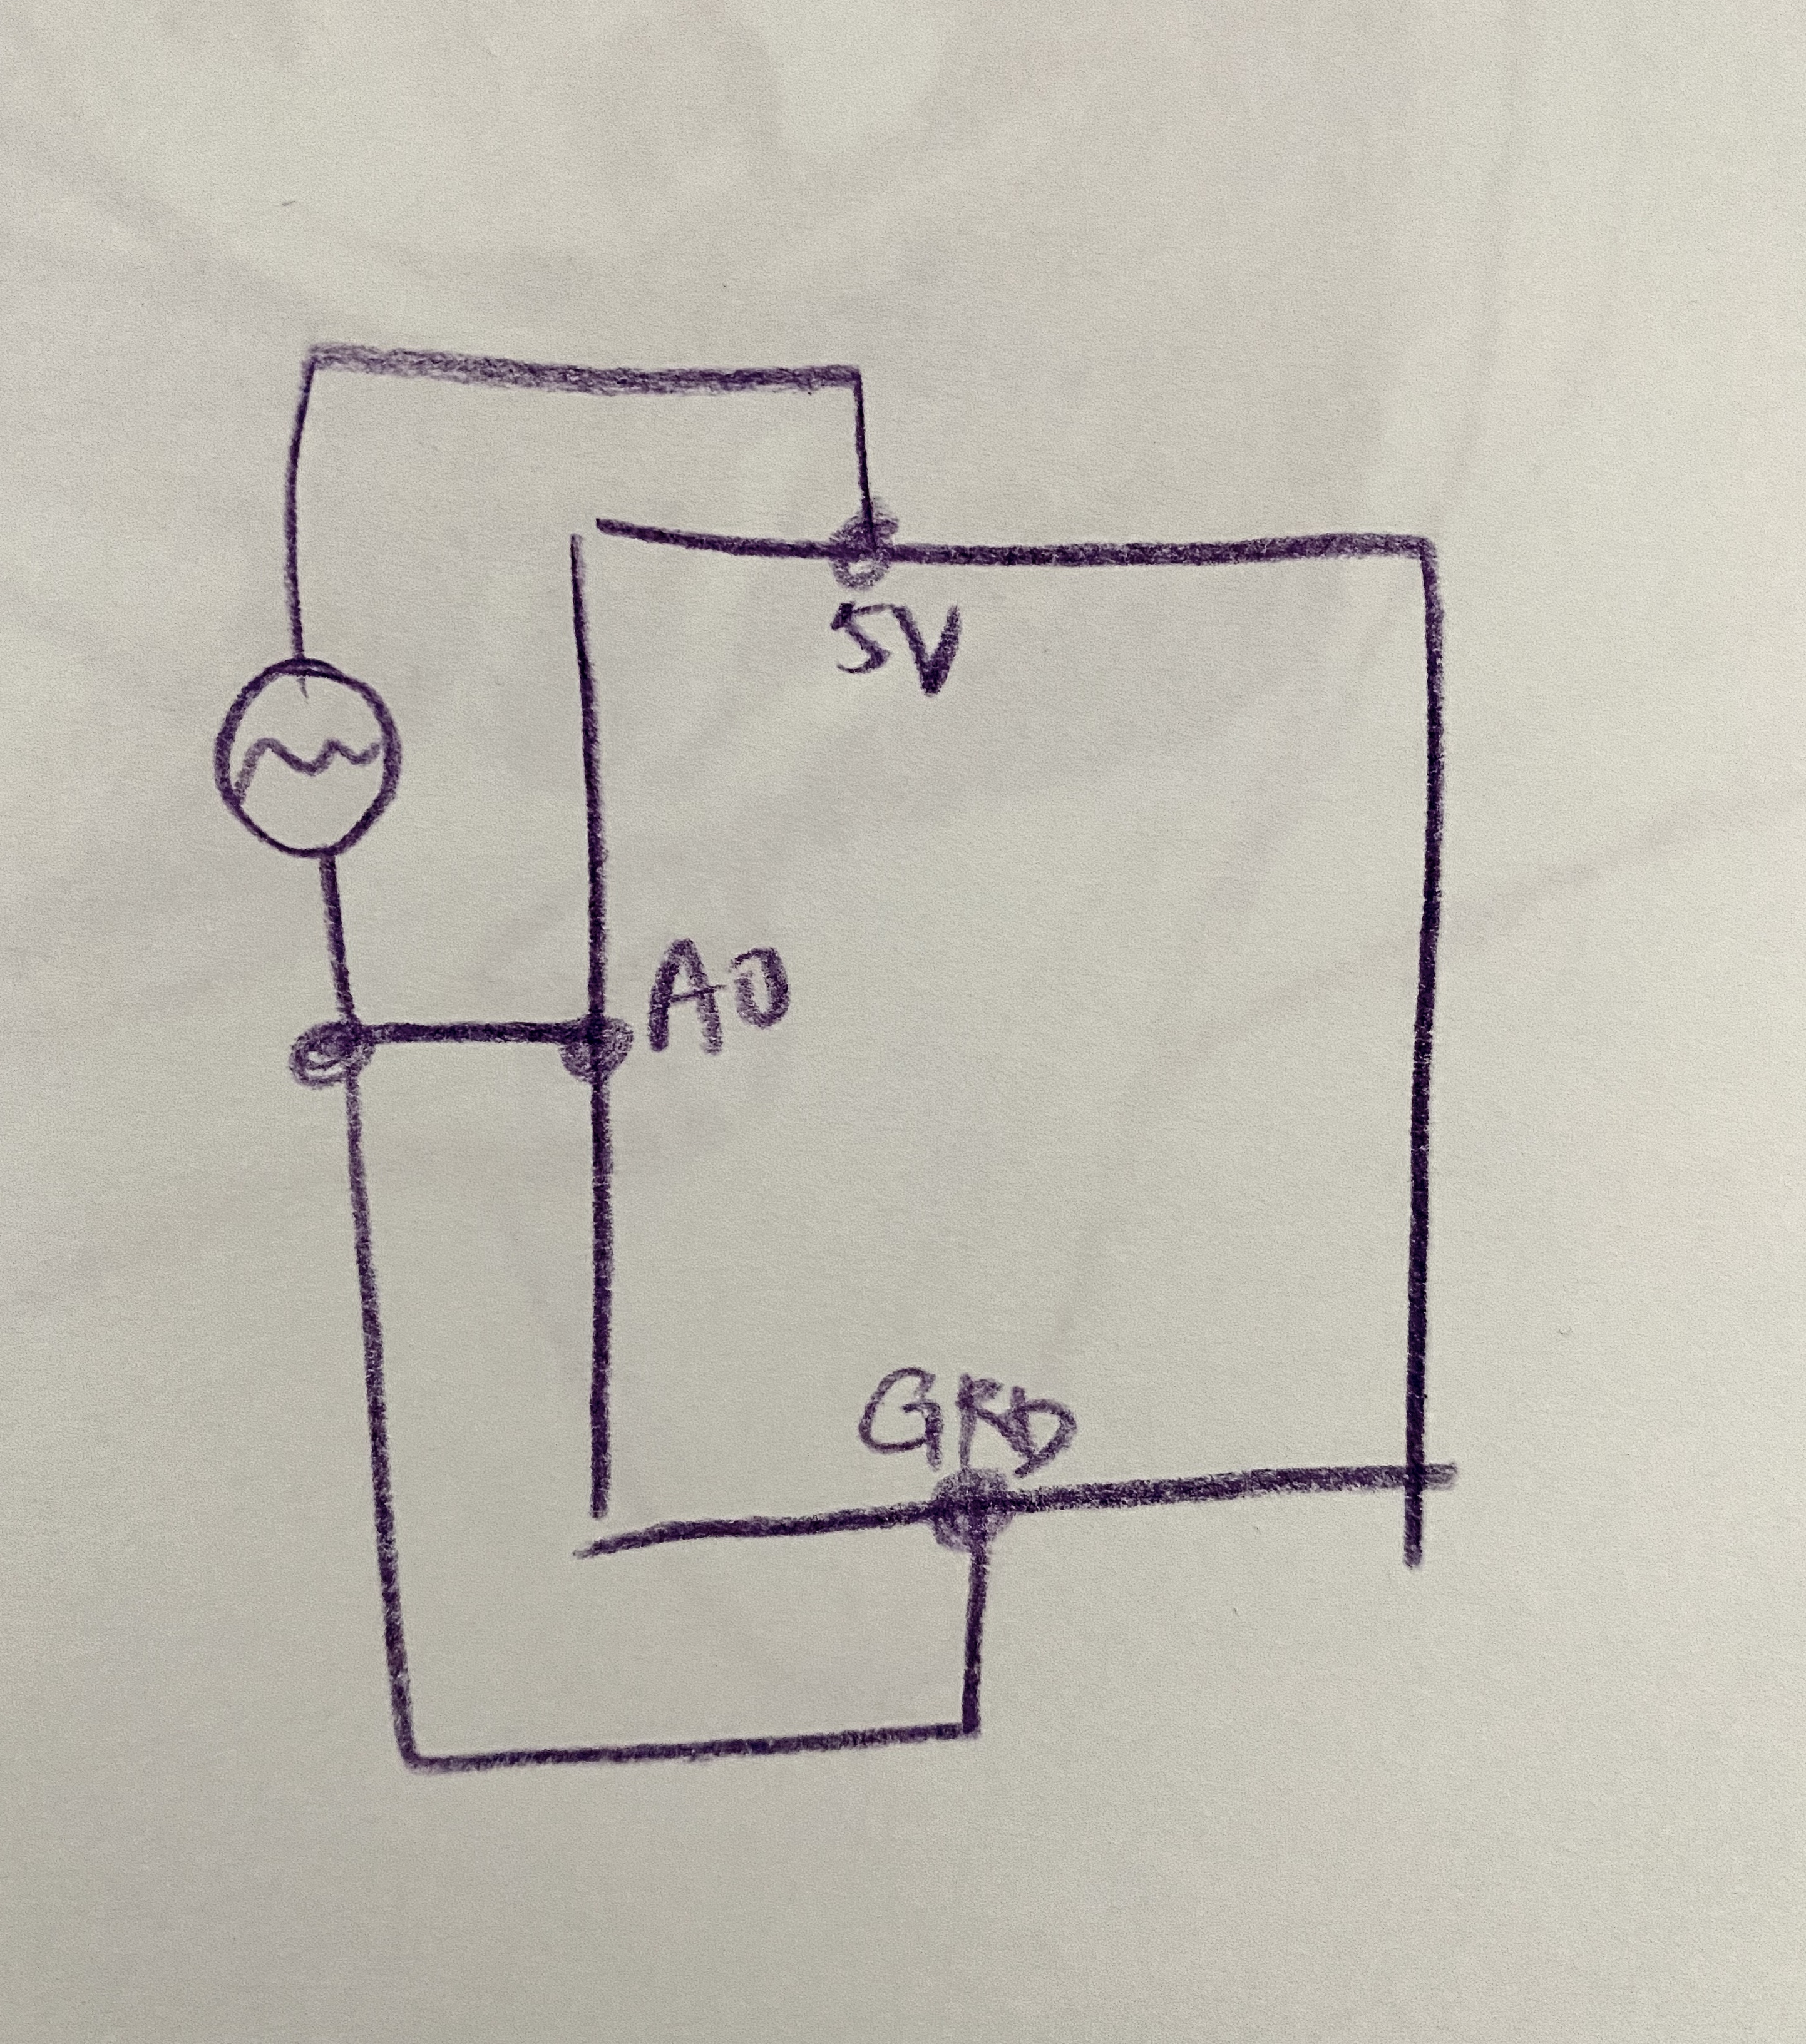 5V
A0
GRD